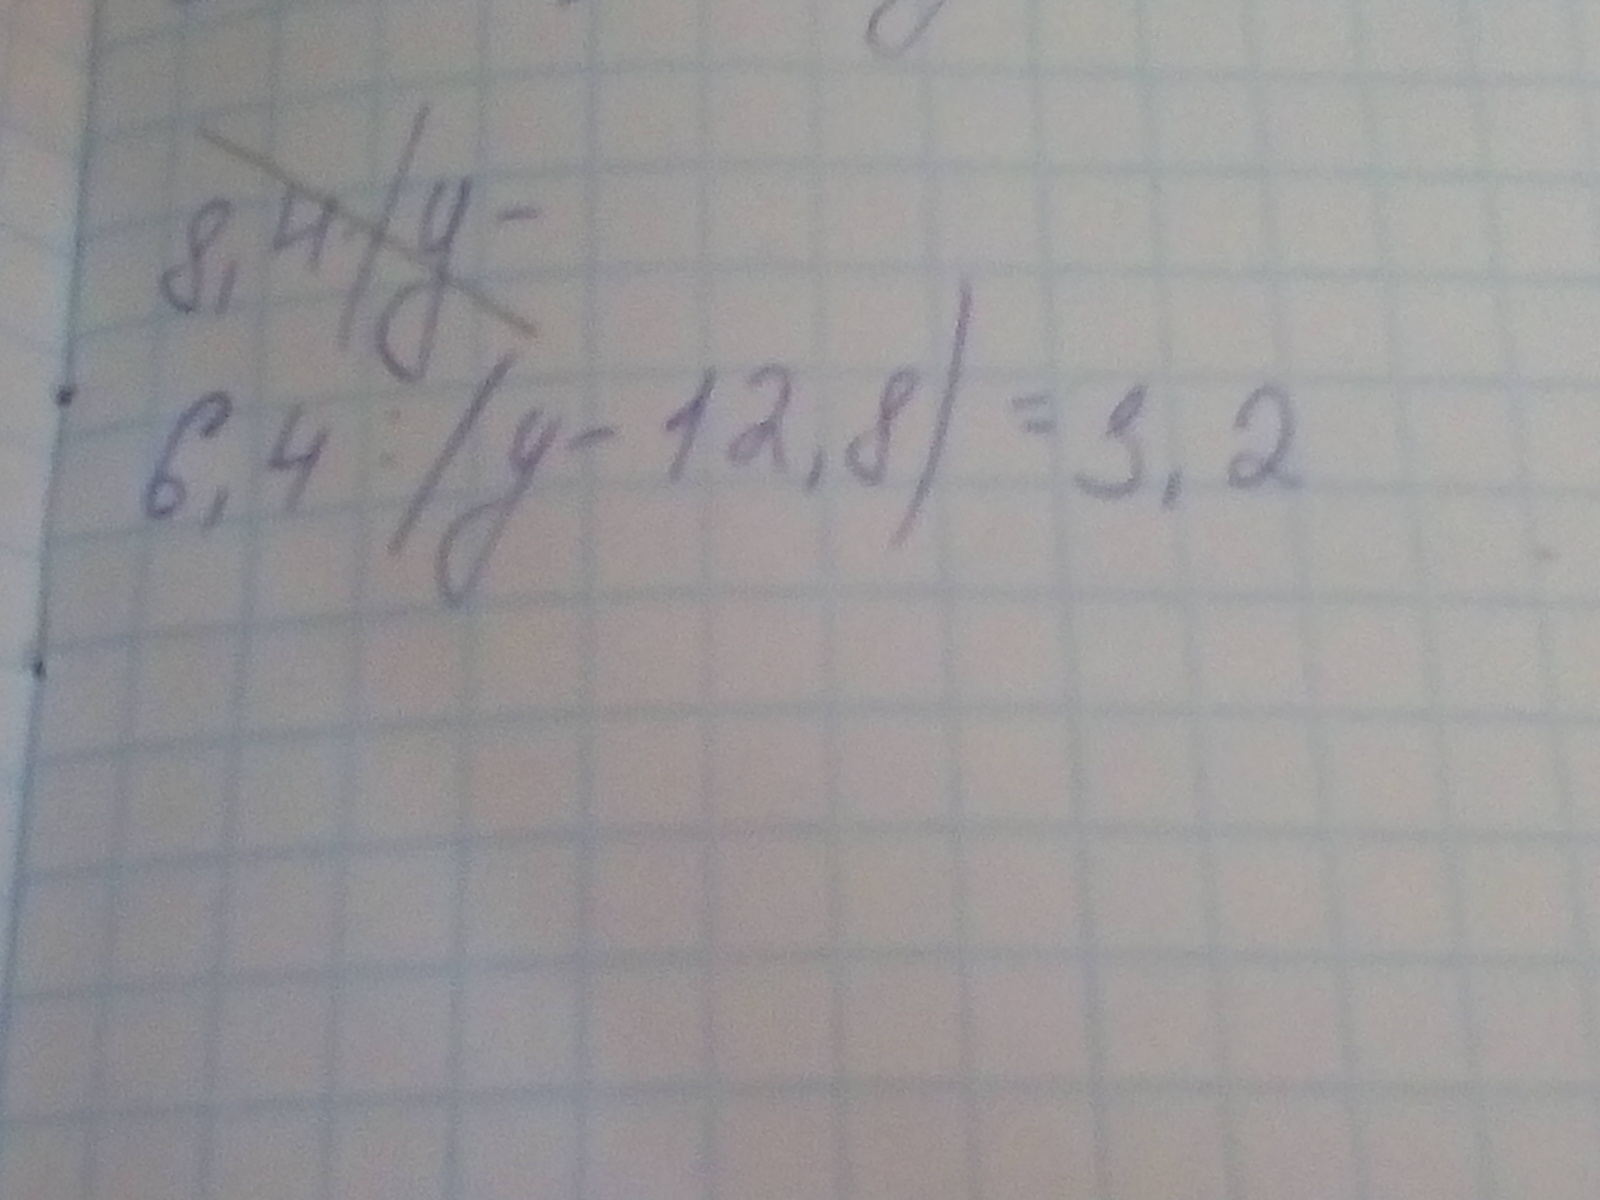 8,4(y-
6,4 : (y-12,8) = 3,2